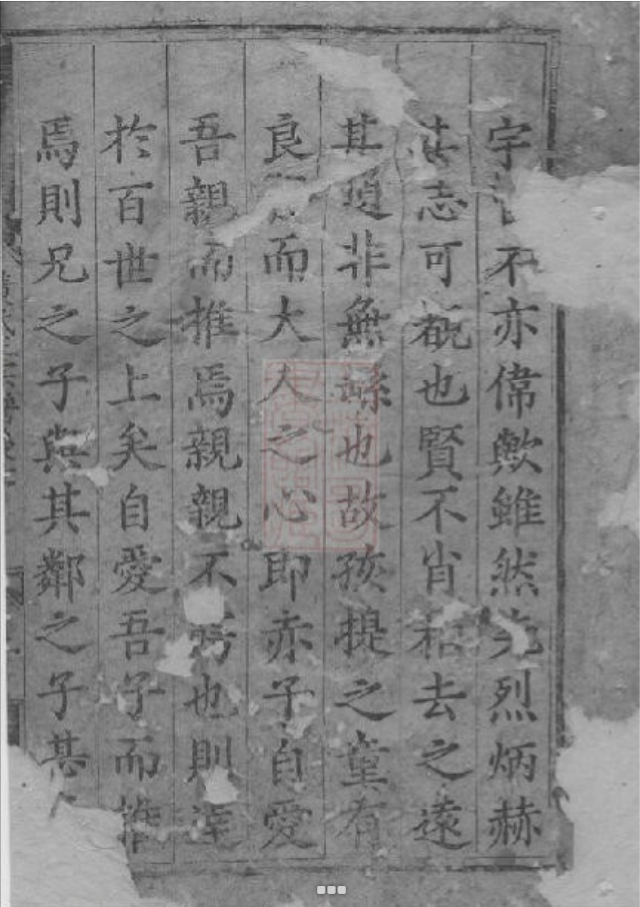 宇不亦偉歟雖然先烈炳赫
其志可概也賢不肖相去之遠
其道非無繇也故孩提之童有
良而大人之心即赤子自愛
吾親而推焉親親不也則達
扵百世之上矣自愛吾子而推
焉則兄之子與其鄰之子甚